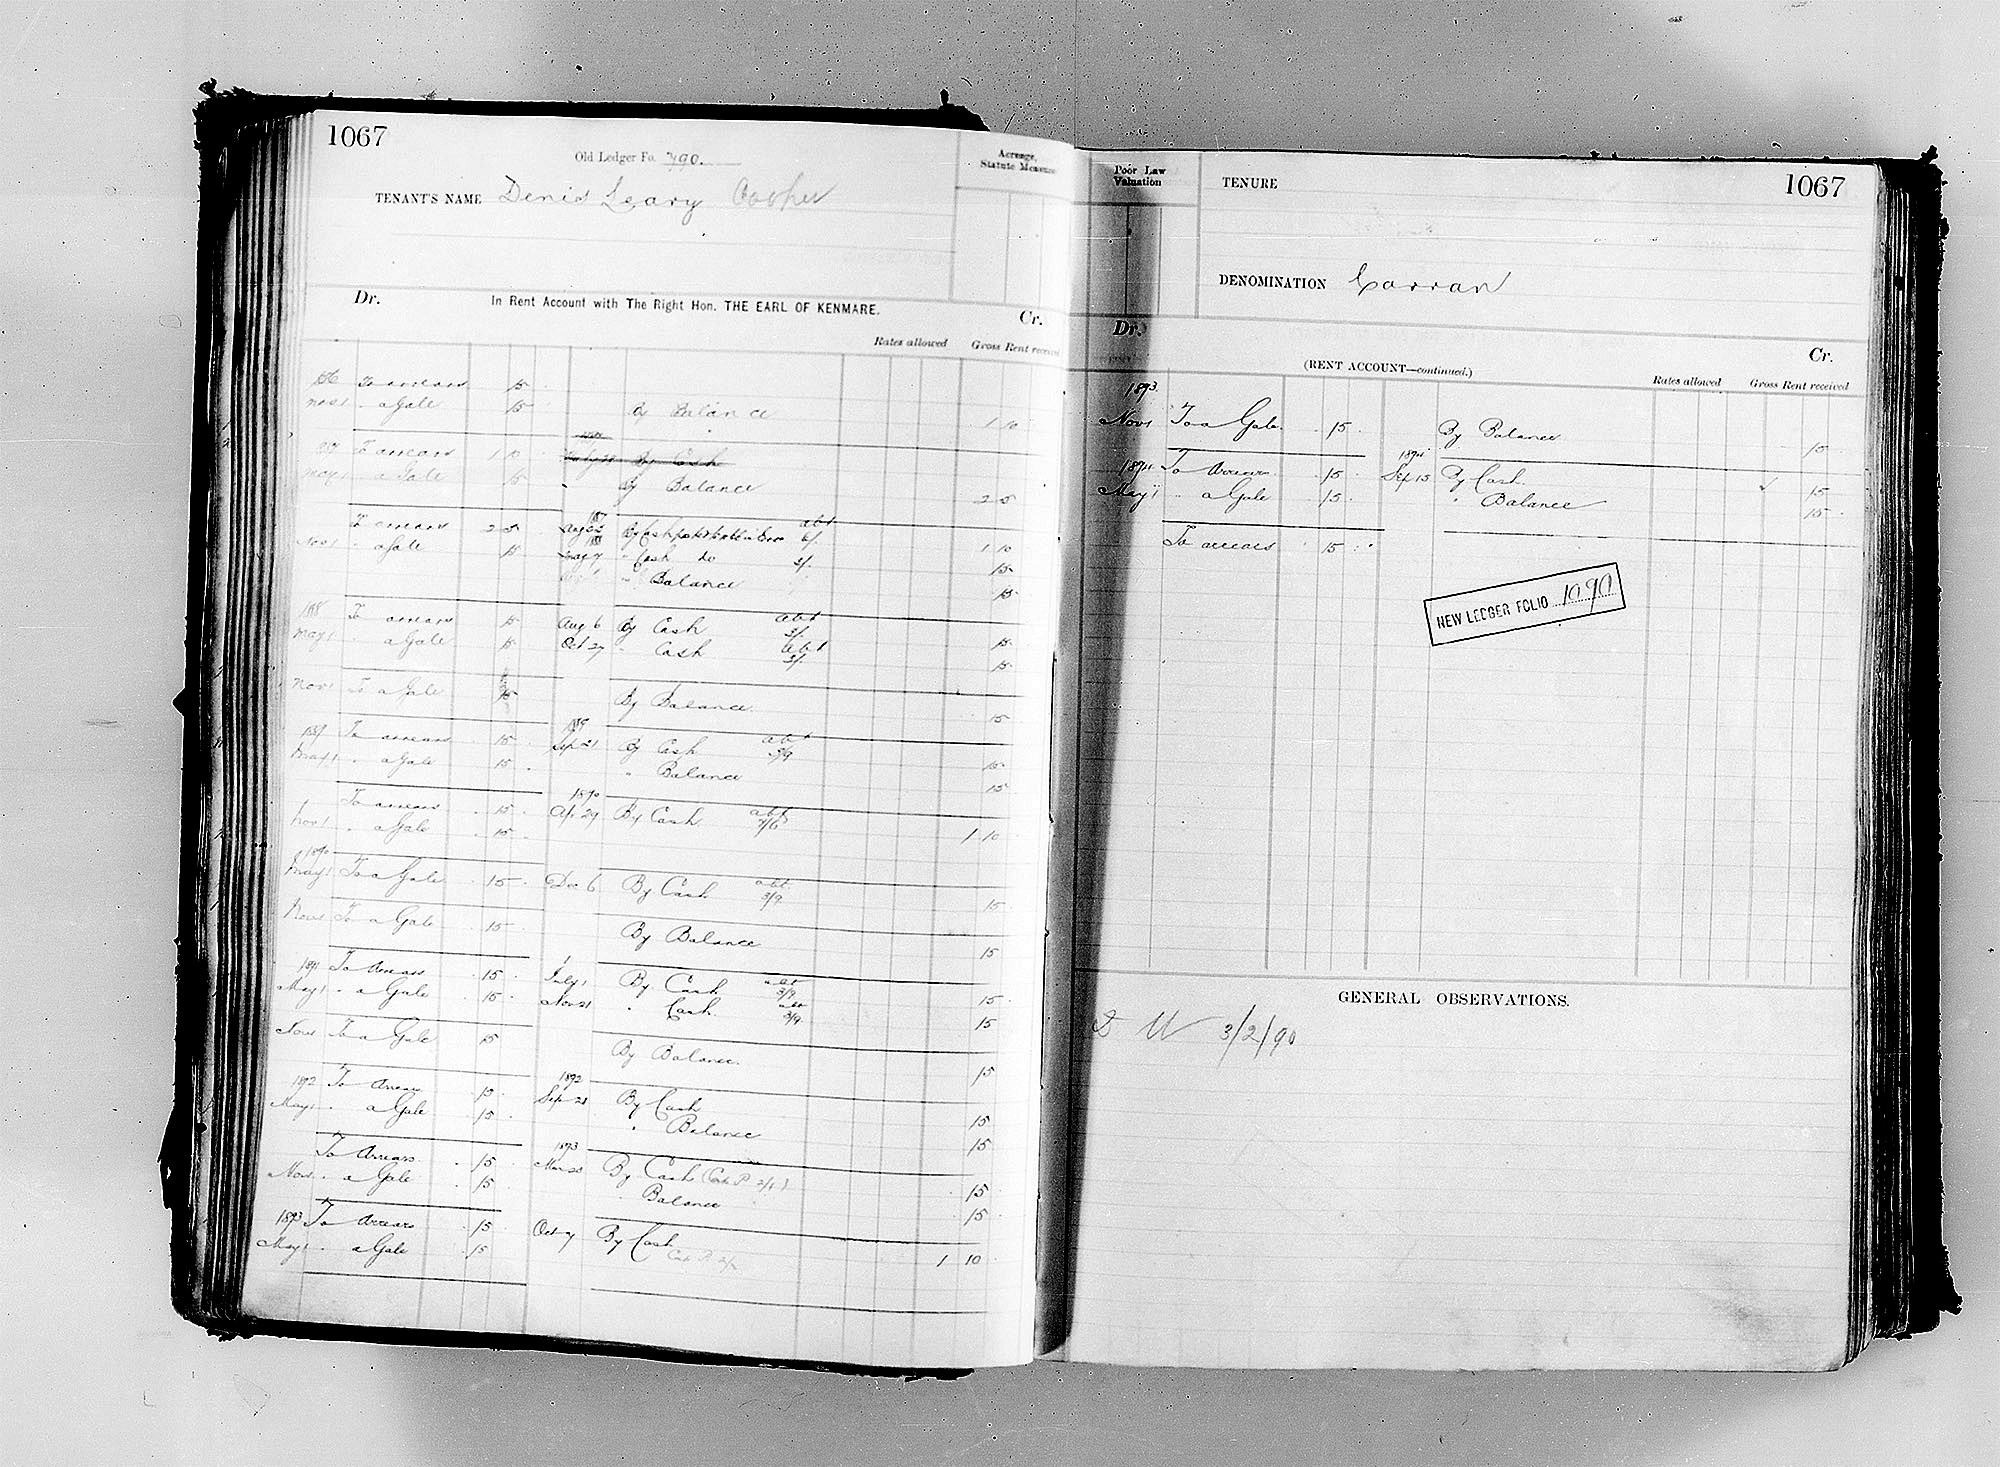 1067
Old Ledger Fo. 790.
Acreage, Statute Measure
TENANT'S NAME Denis Leary Cooper
Dr. In Rent Account with The Right Hon. THE EARL OF KENMARE. Cr.
Rates allowed Gross Rent received
To arrears 15
Nov 1 " a Gale 15 By Balance 1 10
To arrears 1 10 By Cash
May 1 a Gale 15 By Balance 2 5
To arrears 2 5 Aug By Cash abt 1 10
Nov 1 " a Gale 15 " Cash do 15
" Balance 15
188 To arrears 15 Aug 6 By Cash abt 3/. 15
May 1 a Gale 15 Oct 27 " Cash abt 3/. 15
Nov 1 To a Gale 15 By Balance 15
1889
1889 To arrears 15 Sep 21 By Cash abt 3/9 15
May 1 " a Gale 15 " Balance 15
1890
To arrears 15 Ap 29 By Cash abt 7/6 1 10
Nov 1 " a Gale 15
1890
May 1 To a Gale 15 Dec 6 By Cash abt 3/9 15
Nov 1 To a Gale 15 By Balance 15
1891 To Arrears 15 July 1 By Cash abt 3/9 15
May 1 " a Gale 15 Nov 21 " Cash abt 3/9 15
Nov 1 To a Gale 15 By Balance 15
1892
1892 To Arrears 15 Sep 21 By Cash 15
May 1 " a Gale 15 " Balance 15
1893
To Arrears 15 Mar 20 By Cash 15
Nov 1 " a Gale 15 " Balance 15
1893 To Arrears 15 Oct 7 By Cash 1 10
May 1 " a Gale 15
Poor Law Valuation
TENURE
1067
DENOMINATION Carran
Dr. Cr.
(RENT ACCOUNT—continued.)
Rates allowed Gross Rent received
1893
Nov 1 To a Gale 15 By Balance 15
1894
1894 To Arrears 15 Sep 15 By Cash 15
May 1 " a Gale 15 " Balance 15
To arrears 15
NEW LEDGER FOLIO 1090
GENERAL OBSERVATIONS.
3/2/90